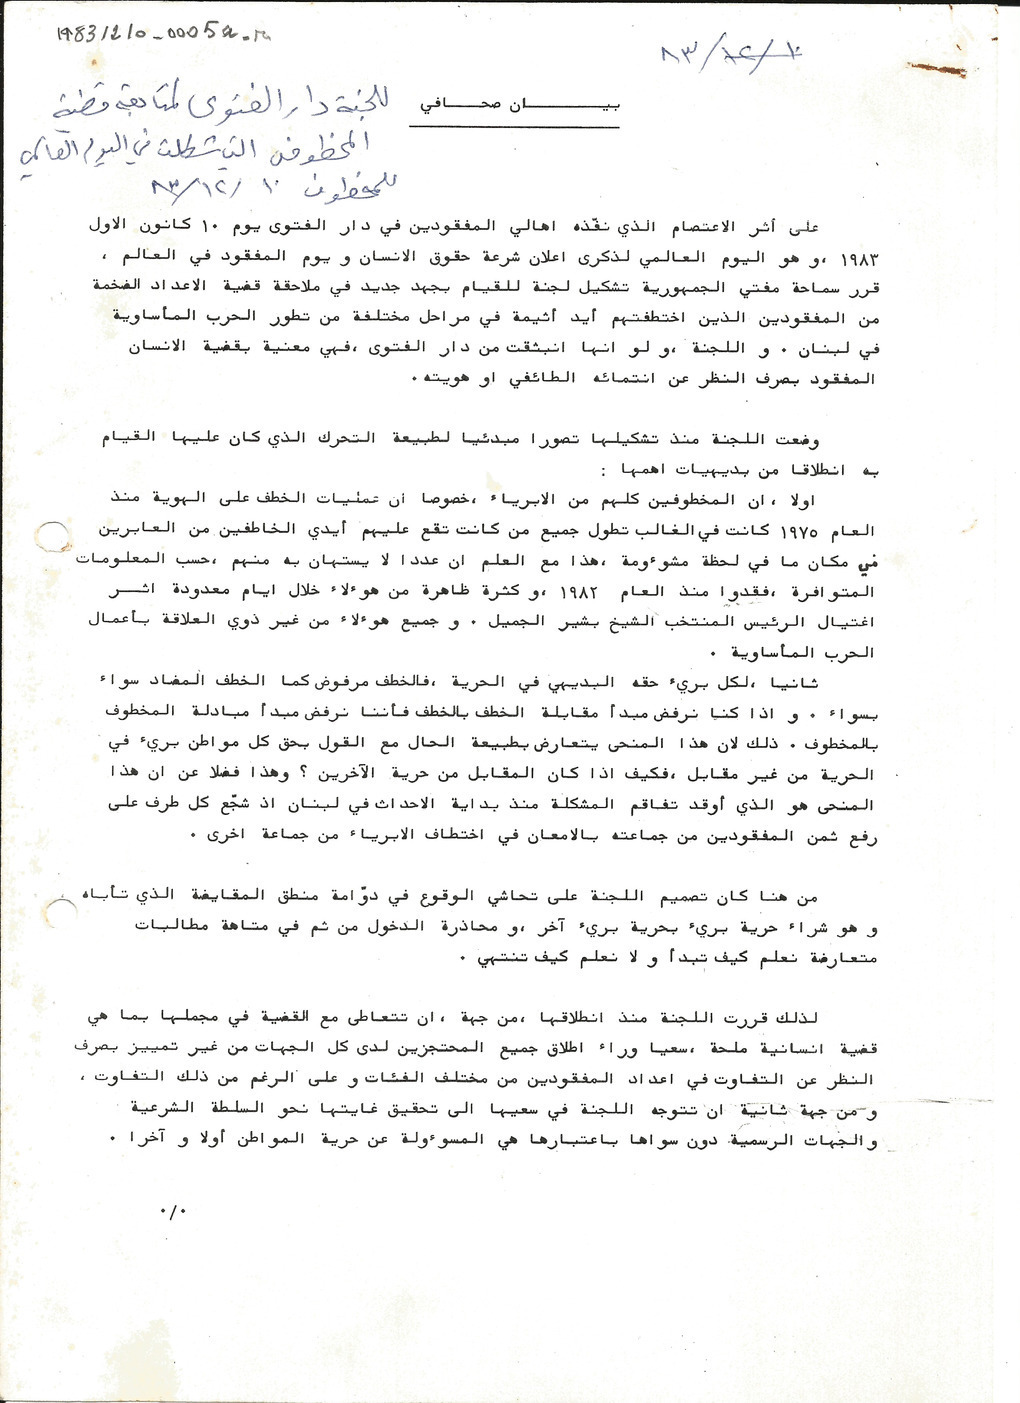 1983/210-0005a.m
٨٣/١٢/١٠
للجنة دار الفتوى لمتابعة قضية
المخطوفين التي شكلت في اليوم العالمي
للمخطوف ١٠/١٢/٨٣
بيـــــــان صحــــافي
على أثر الاعتصام الذي نفّذه اهالي المفقودين في دار الفتوى يوم ١٠ كانون الاول
١٩٨٣ ،و هو اليوم العالمي لذكرى اعلان شرعة حقوق الانسان و يوم المفقود في العالم ،
قرر سماحة مفتي الجمهورية تشكيل لجنة للقيام بجهد جديد في ملاحقة قضية الاعداد الضخمة
من المفقودين الذين اختطفتهم أيد أثيمة في مراحل مختلفة من تطور الحرب المأساوية
في لبنان ٠ و اللجنة ،و لو انها انبثقت من دار الفتوى ،فهي معنية بقضية الانسان
المفقود بصرف النظر عن انتمائه الطائفي او هويته٠
وضعت اللجنة منذ تشكيلها تصورا مبدئيا لطبيعة التحرك الذي كان عليها القيام
به انطلاقا من بديهيات اهمها :
اولا ،ان المخطوفين كلهم من الابرياء ،خصوصا ان عمليات الخطف على الهوية منذ
العام ١٩٧٥ كانت في الغالب تطول جميع من كانت تقع عليهم أيدي الخاطفين من العابرين
في مكان ما في لحظة مشوءومة ،هذا مع العلم ان عددا لا يستهان به منهم ،حسب المعلومات
المتوافرة ،فقدوا منذ العام ١٩٨٢ ،و كثرة ظاهرة من هوءلاء خلال ايام معدودة اثــر
اغتيال الرئيس المنتخب الشيخ بشير الجميل ٠ و جميع هوءلاء من غير ذوي العلاقة بأعمال
الحرب المأساوية ٠
ثانيا ،لكل بريء حقه البديهي في الحرية ،فالخطف مرفوض كما الخطف المضاد سواء
بسواء ٠ و اذا كنا نرفض مبدأ مقابلة الخطف بالخطف فأننا نرفض مبدأ مبادلة المخطوف
بالمخطوف ٠ ذلك لان هذا المنحى يتعارض بطبيعة الحال مع القول بحق كل مواطن بريء في
الحرية من غير مقابل ،فكيف اذا كان المقابل من حرية الآخرين ؟ وهذا فضلا عن ان هذا
المنحى هو الذي أوقد تفاقم المشكلة منذ بداية الاحداث في لبنان اذ شجّع كل طرف على
رفع ثمن المفقودين من جماعته بالامعان في اختطاف الابرياء من جماعة اخرى ٠
من هنا كان تصميم اللجنة على تحاشي الوقوع في دوّامة منطق المقايضة الذي تأباه
و هو شراء حرية بريء بحرية بريء آخر ،و محاذرة الدخول من ثم في متاهة مطالبات
متعارضة نعلم كيف تبدأ و لا نعلم كيف تنتهي ٠
لذلك قررت اللجنة منذ انطلاقها ،من جهة ،ان تتعاطى مع القضية في مجملها بما هي
قضية انسانية ملحة ،سعيا وراء اطلاق جميع المحتجزين لدى كل الجهات من غير تمييز بصرف
النظر عن التفاوت في اعداد المفقودين من مختلف الفئات و على الرغم من ذلك التفاوت ،
و من جهة ثانية ان تتوجه اللجنة في سعيها الى تحقيق غايتها نحو السلطة الشرعية
والجهات الرسمية دون سواها باعتبارها هي المسوءولة عن حرية المواطن أولا و آخرا ٠
٠/٠